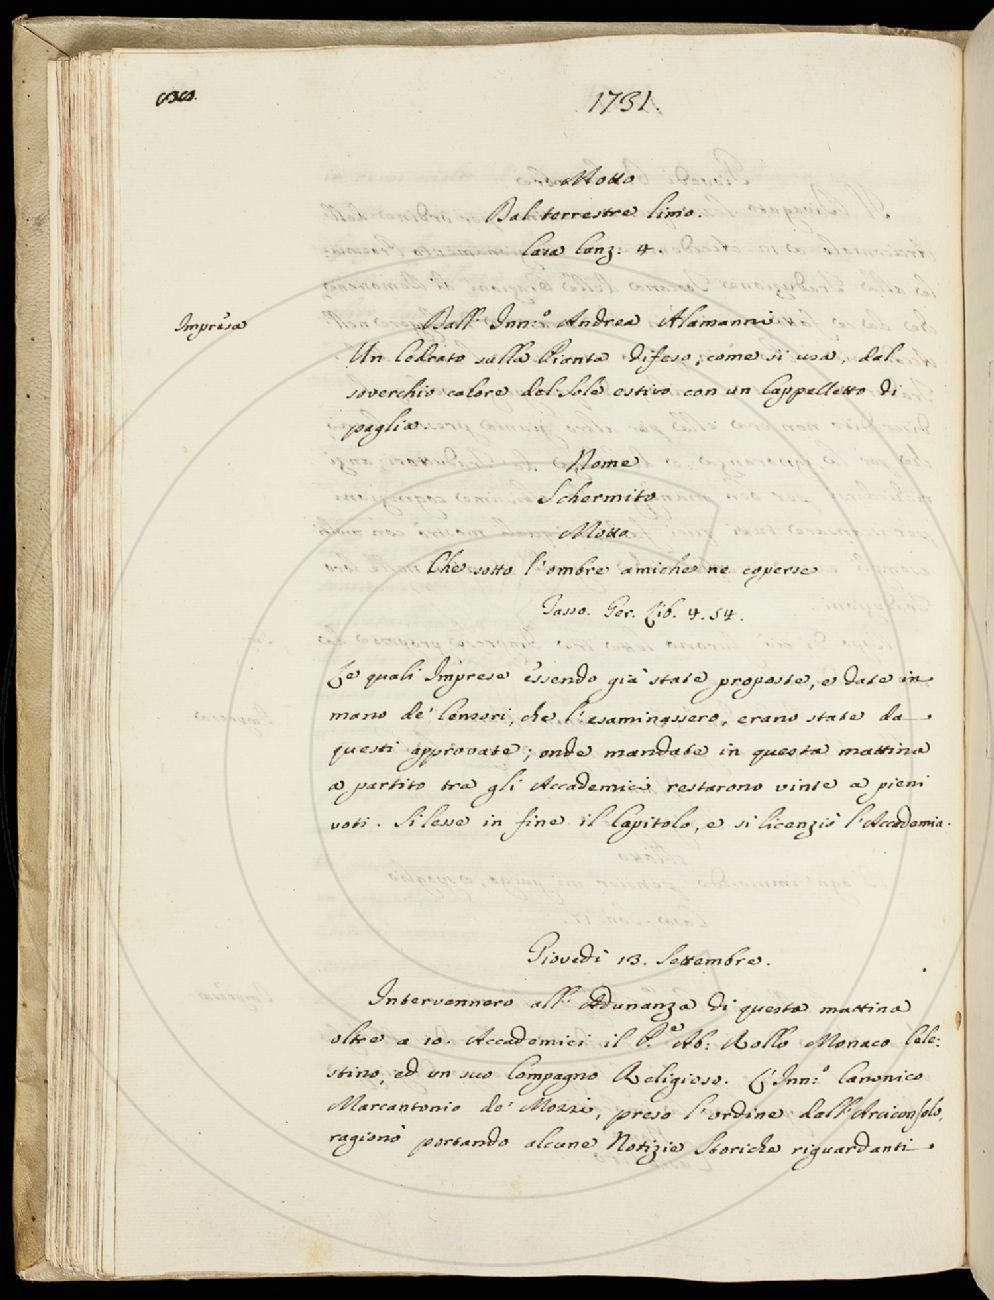 1731.
Motto
Dal terrestre limo.
Casa Canz: 4.
Impresa
Dall' Inn.º Andrea Alamanni
Un Cedrato sulla Pianta difeso, come si usa, dal
soverchio calore del Sole estivo con un Cappelletto di
paglia.
Nome
Schermito
Motto
Che sotto l'ombre amiche ne coperse
Tasso. Ger. Lib. 4. 54.
Le quali Imprese essendo già state proposte, e date in
mano de' Censori, che l'esaminassero, erano state da
questi approvate; onde mandate in questa mattina
a partito tra gli Accademici restarono vinte a pieni
voti. Si lesse in fine il Capitolo, e si licenziò l'Accademia.
Giovedì 13. Settembre.
Intervennero all'Adunanza di questa mattina
oltre a 10. Accademici il P.e Ab: Rollo Monaco Cele:
stino, ed un suo Compagno Religioso. L'Inn.º Canonico
Marcantonio de' Mozzi, preso l'ordine dall'Arciconsolo,
ragionò portando alcune Notizie Storiche riguardanti